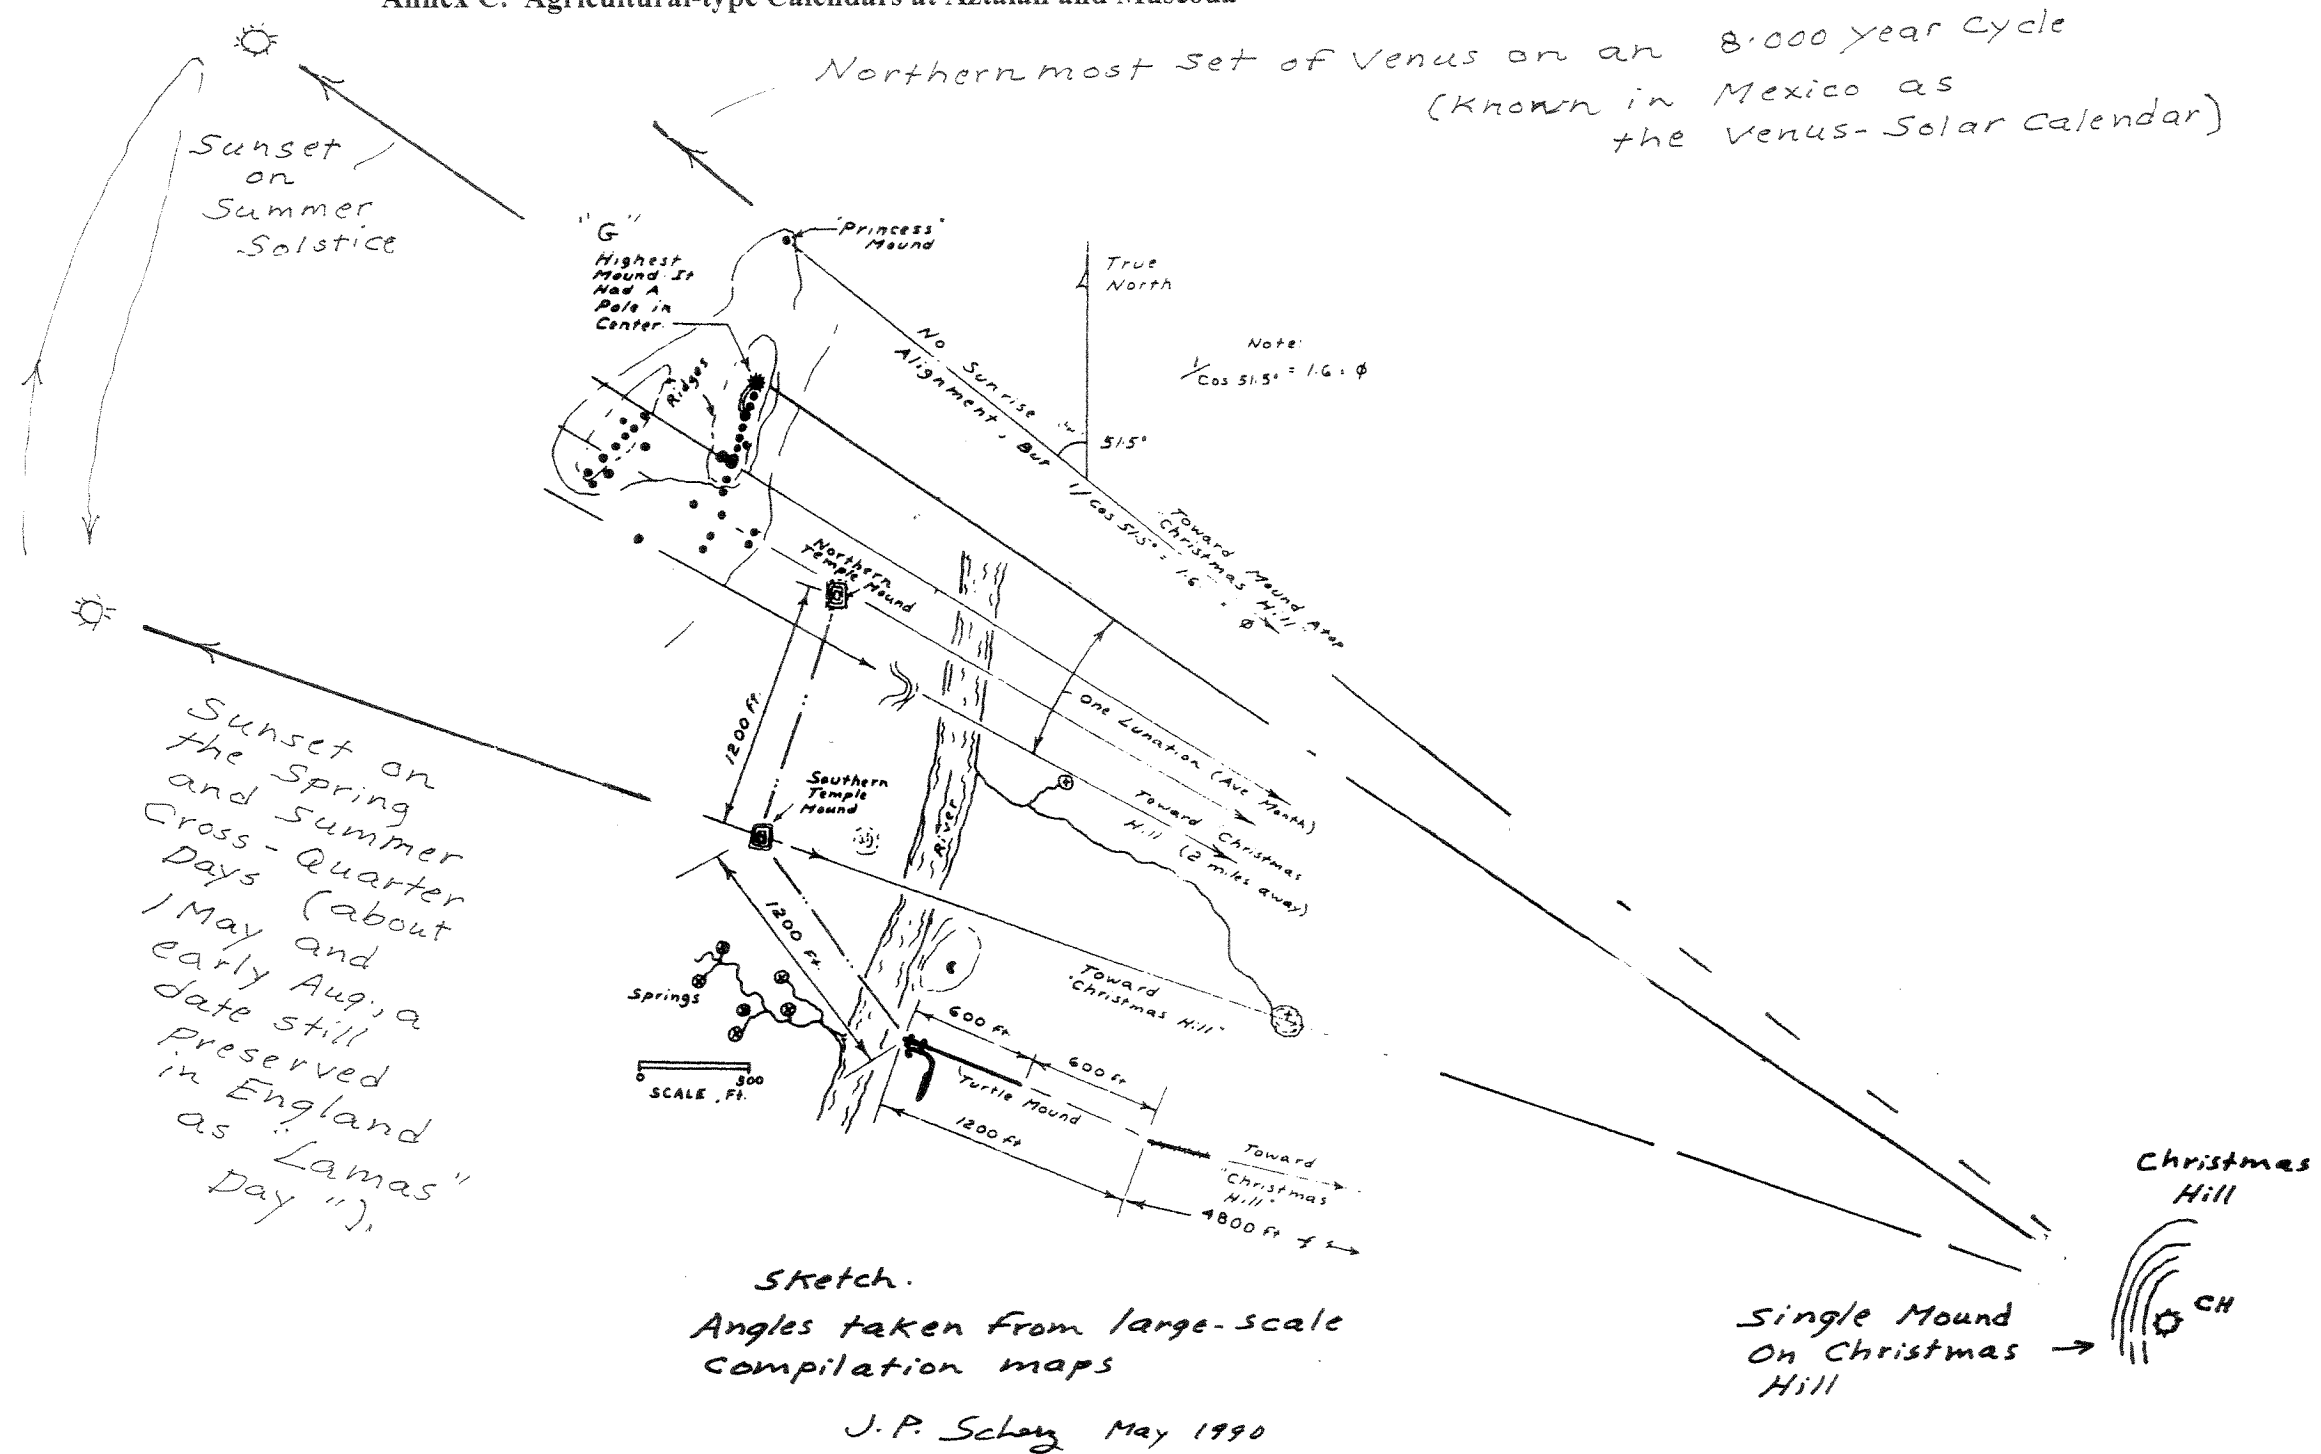 Annex C: Agricultural-type Calendars at Aztalan and Muscoda
Northernmost set of Venus on an 8.000 year cycle
(Known in Mexico as
the Venus-Solar Calendar)
Sunset
on
Summer
Solstice
"G"
Highest
Mound It
Had A
Pole in
Center.
"Princess"
Mound
True
North
Note:
1/Cos 51.5° = 1.6 = φ
51.5°
Ridges
No Sunrise
Alignment, But
1/Cos 51.5° = 1.6 = φ
Toward Mound Atop
Christmas Hill
Northern
Temple Mound
1200 Ft.
One Lunation (Ave Month)
Toward Christmas
Hill (2 miles away)
Southern
Temple
Mound
River
Sunset on
the Spring
and Summer
Cross-Quarter
Days (about
1 May and
early Aug., a
date still
preserved
in England
as "Lamas"
Day").
1200 Ft.
Springs
Toward
"Christmas Hill"
600 Ft
600 Ft
Turtle Mound
0 300
SCALE, Ft.
1200 Ft
Toward
"Christmas
Hill"
4800 Ft
Christmas
Hill
CH
Single Mound
On Christmas
Hill
Sketch.
Angles taken from large-scale
compilation maps
J.P. Scherz May 1990